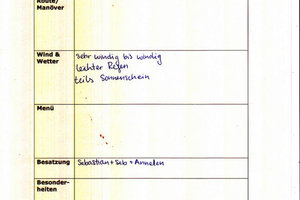 Route/
Manöver
Wind &
Wetter
sehr windig bis windig
leichter Regen
teils Sonnenschein
Menü
Besatzung
Sebastian + Seb + Annelen
Besonder-
heiten